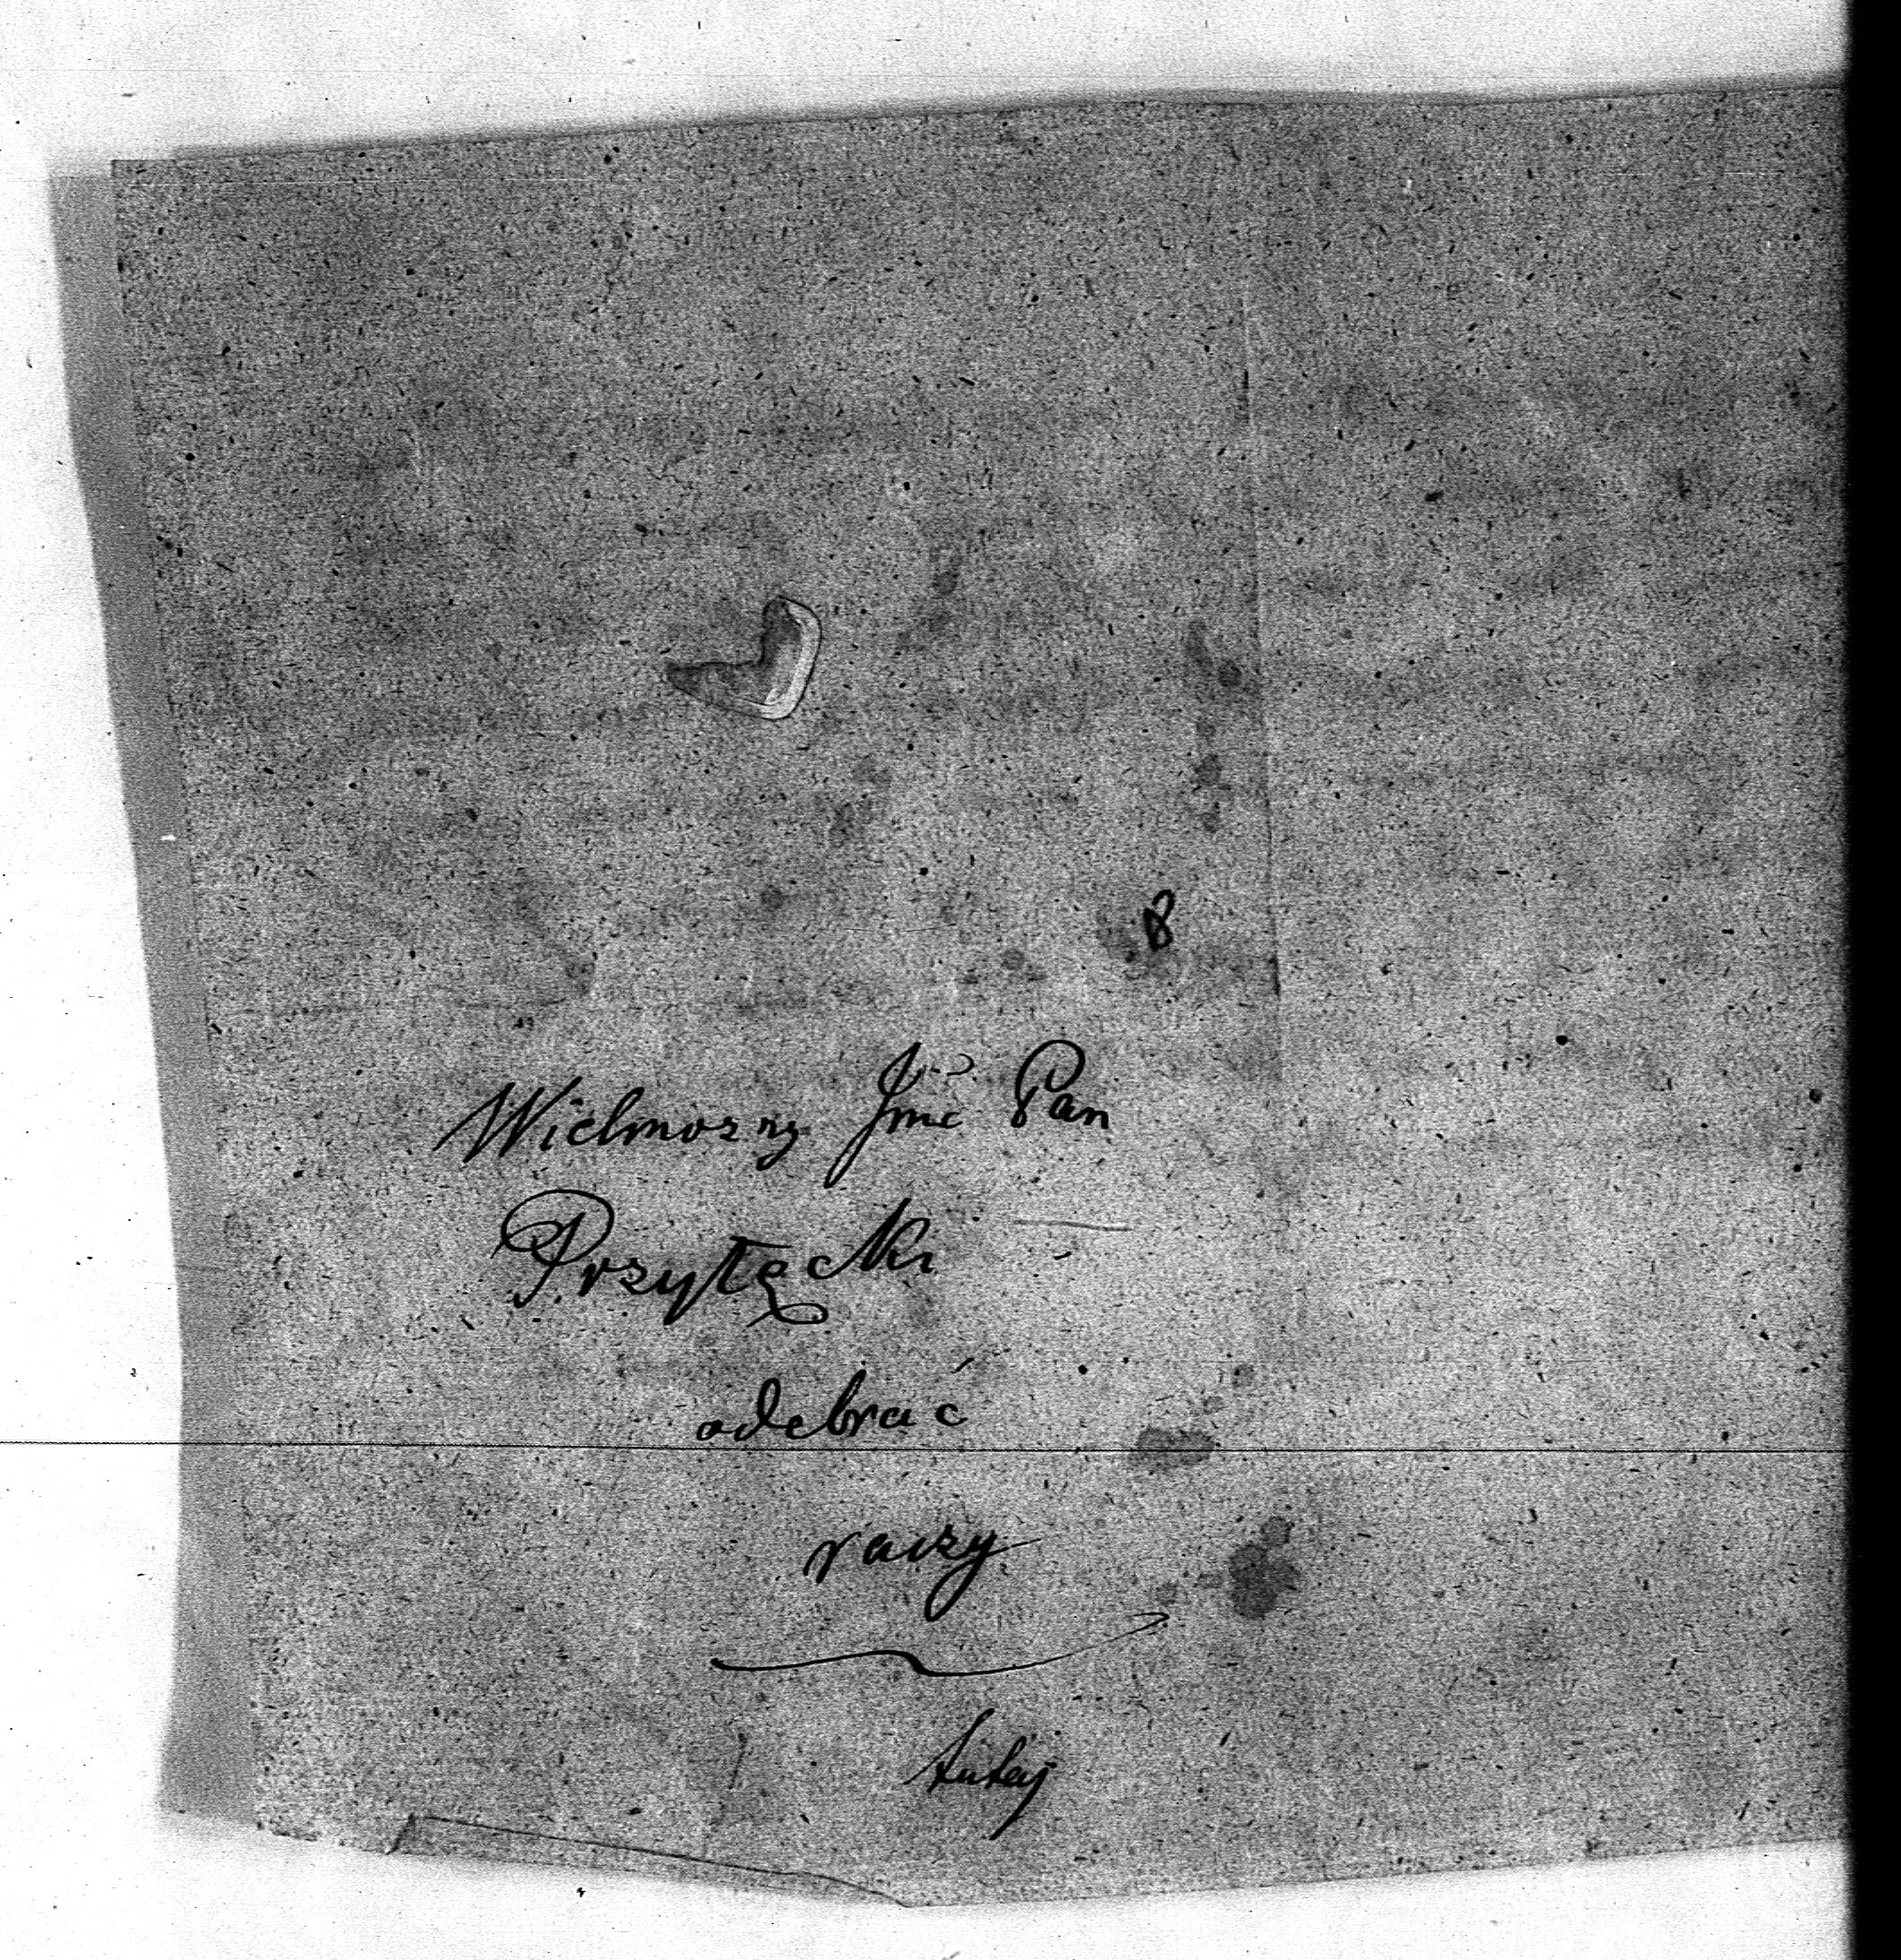 8
Wielmozny Jmć Pan
Przyłęcki
odebrać
raczy
tutaj